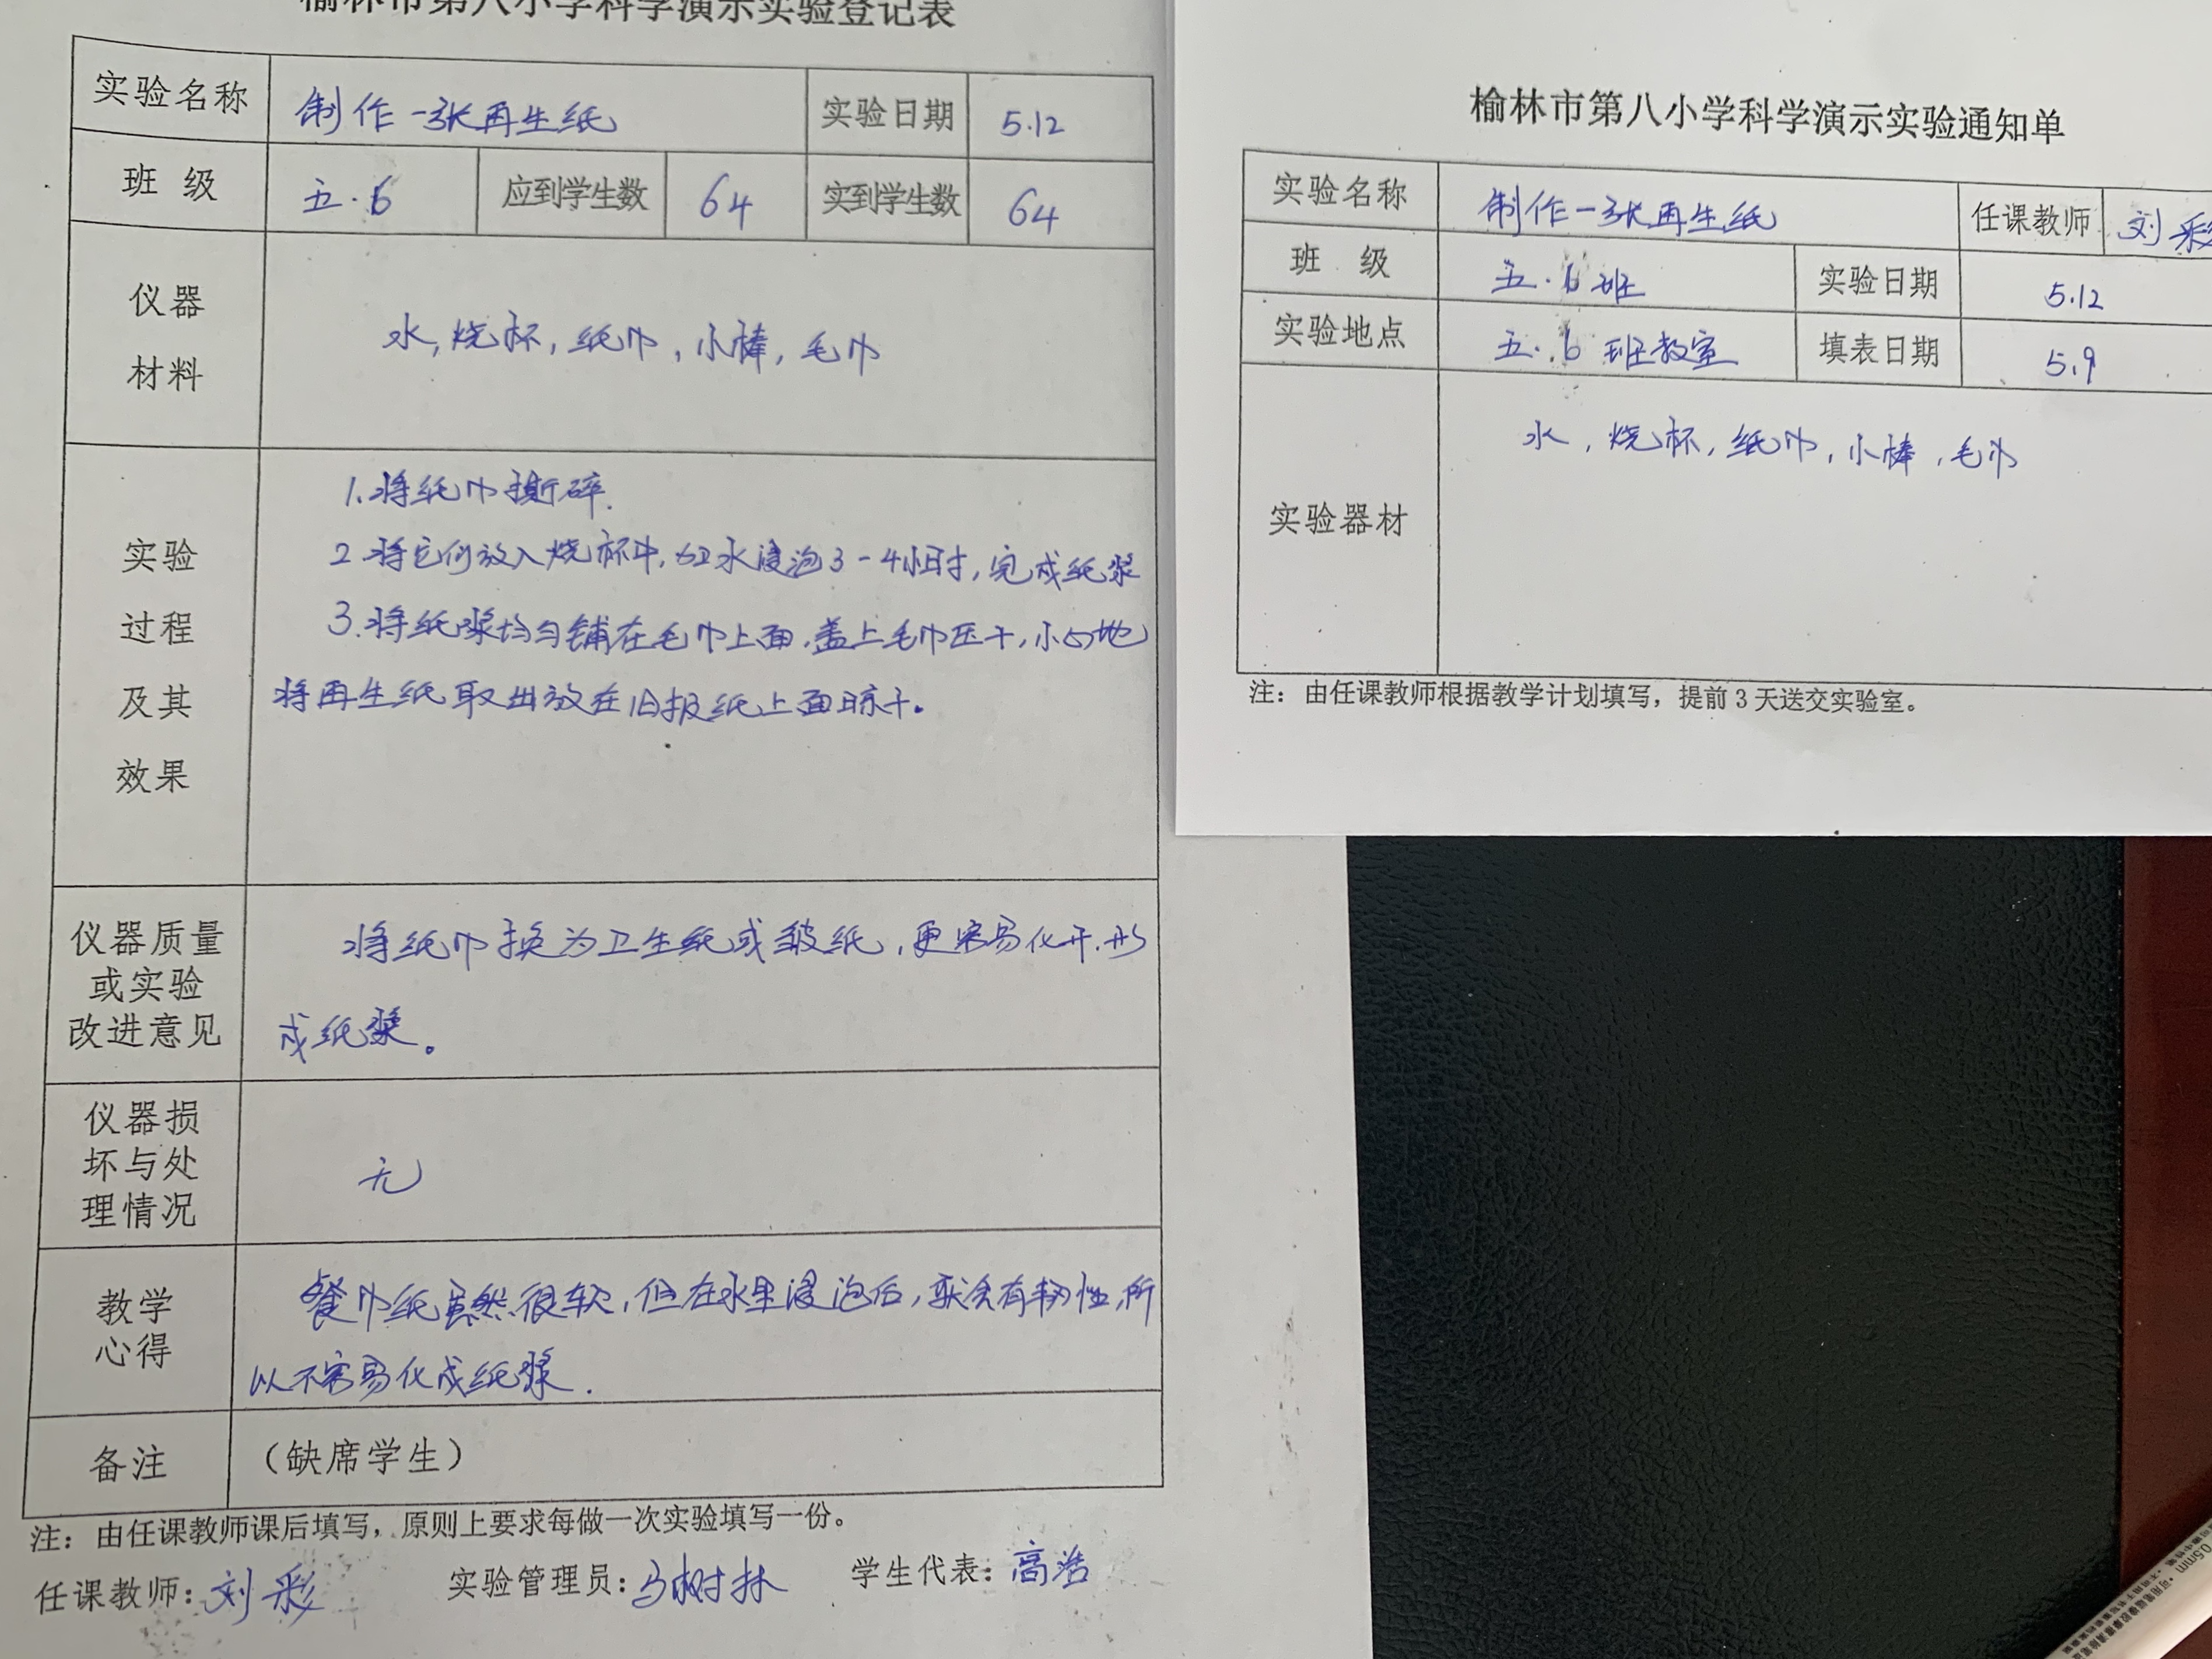 榆林市第八小学科学演示实验登记表
实验名称 制作一张再生纸 实验日期 5.12
班 级 五.6 应到学生数 64 实到学生数 64
仪器
材料
水,烧杯,纸巾,小棒,毛巾
实验
过程
及其
效果
1.将纸巾撕碎.
2 将它们放入烧杯中,加水浸泡3-4小时,完成纸浆
3.将纸浆均匀铺在毛巾上面,盖上毛巾压干,小心地
将再生纸取出放在旧报纸上面晾干。
仪器质量
或实验
改进意见
将纸巾换为卫生纸或皱纸,更容易化开.形
成纸浆。
仪器损
坏与处
理情况
无
教学
心得
餐巾纸虽然很软,但在水里浸泡后,就会有韧性,所
以不容易化成纸浆.
备注 (缺席学生)
注:由任课教师课后填写,原则上要求每做一次实验填写一份。
任课教师:刘彩 实验管理员:马树林 学生代表:高浩
榆林市第八小学科学演示实验通知单
实验名称 制作一张再生纸 任课教师 刘彩
班 级 五.6班 实验日期 5.12
实验地点 五.6班教室 填表日期 5.9
实验器材
水,烧杯,纸巾,小棒,毛巾
注:由任课教师根据教学计划填写,提前3天送交实验室。
0.5mm